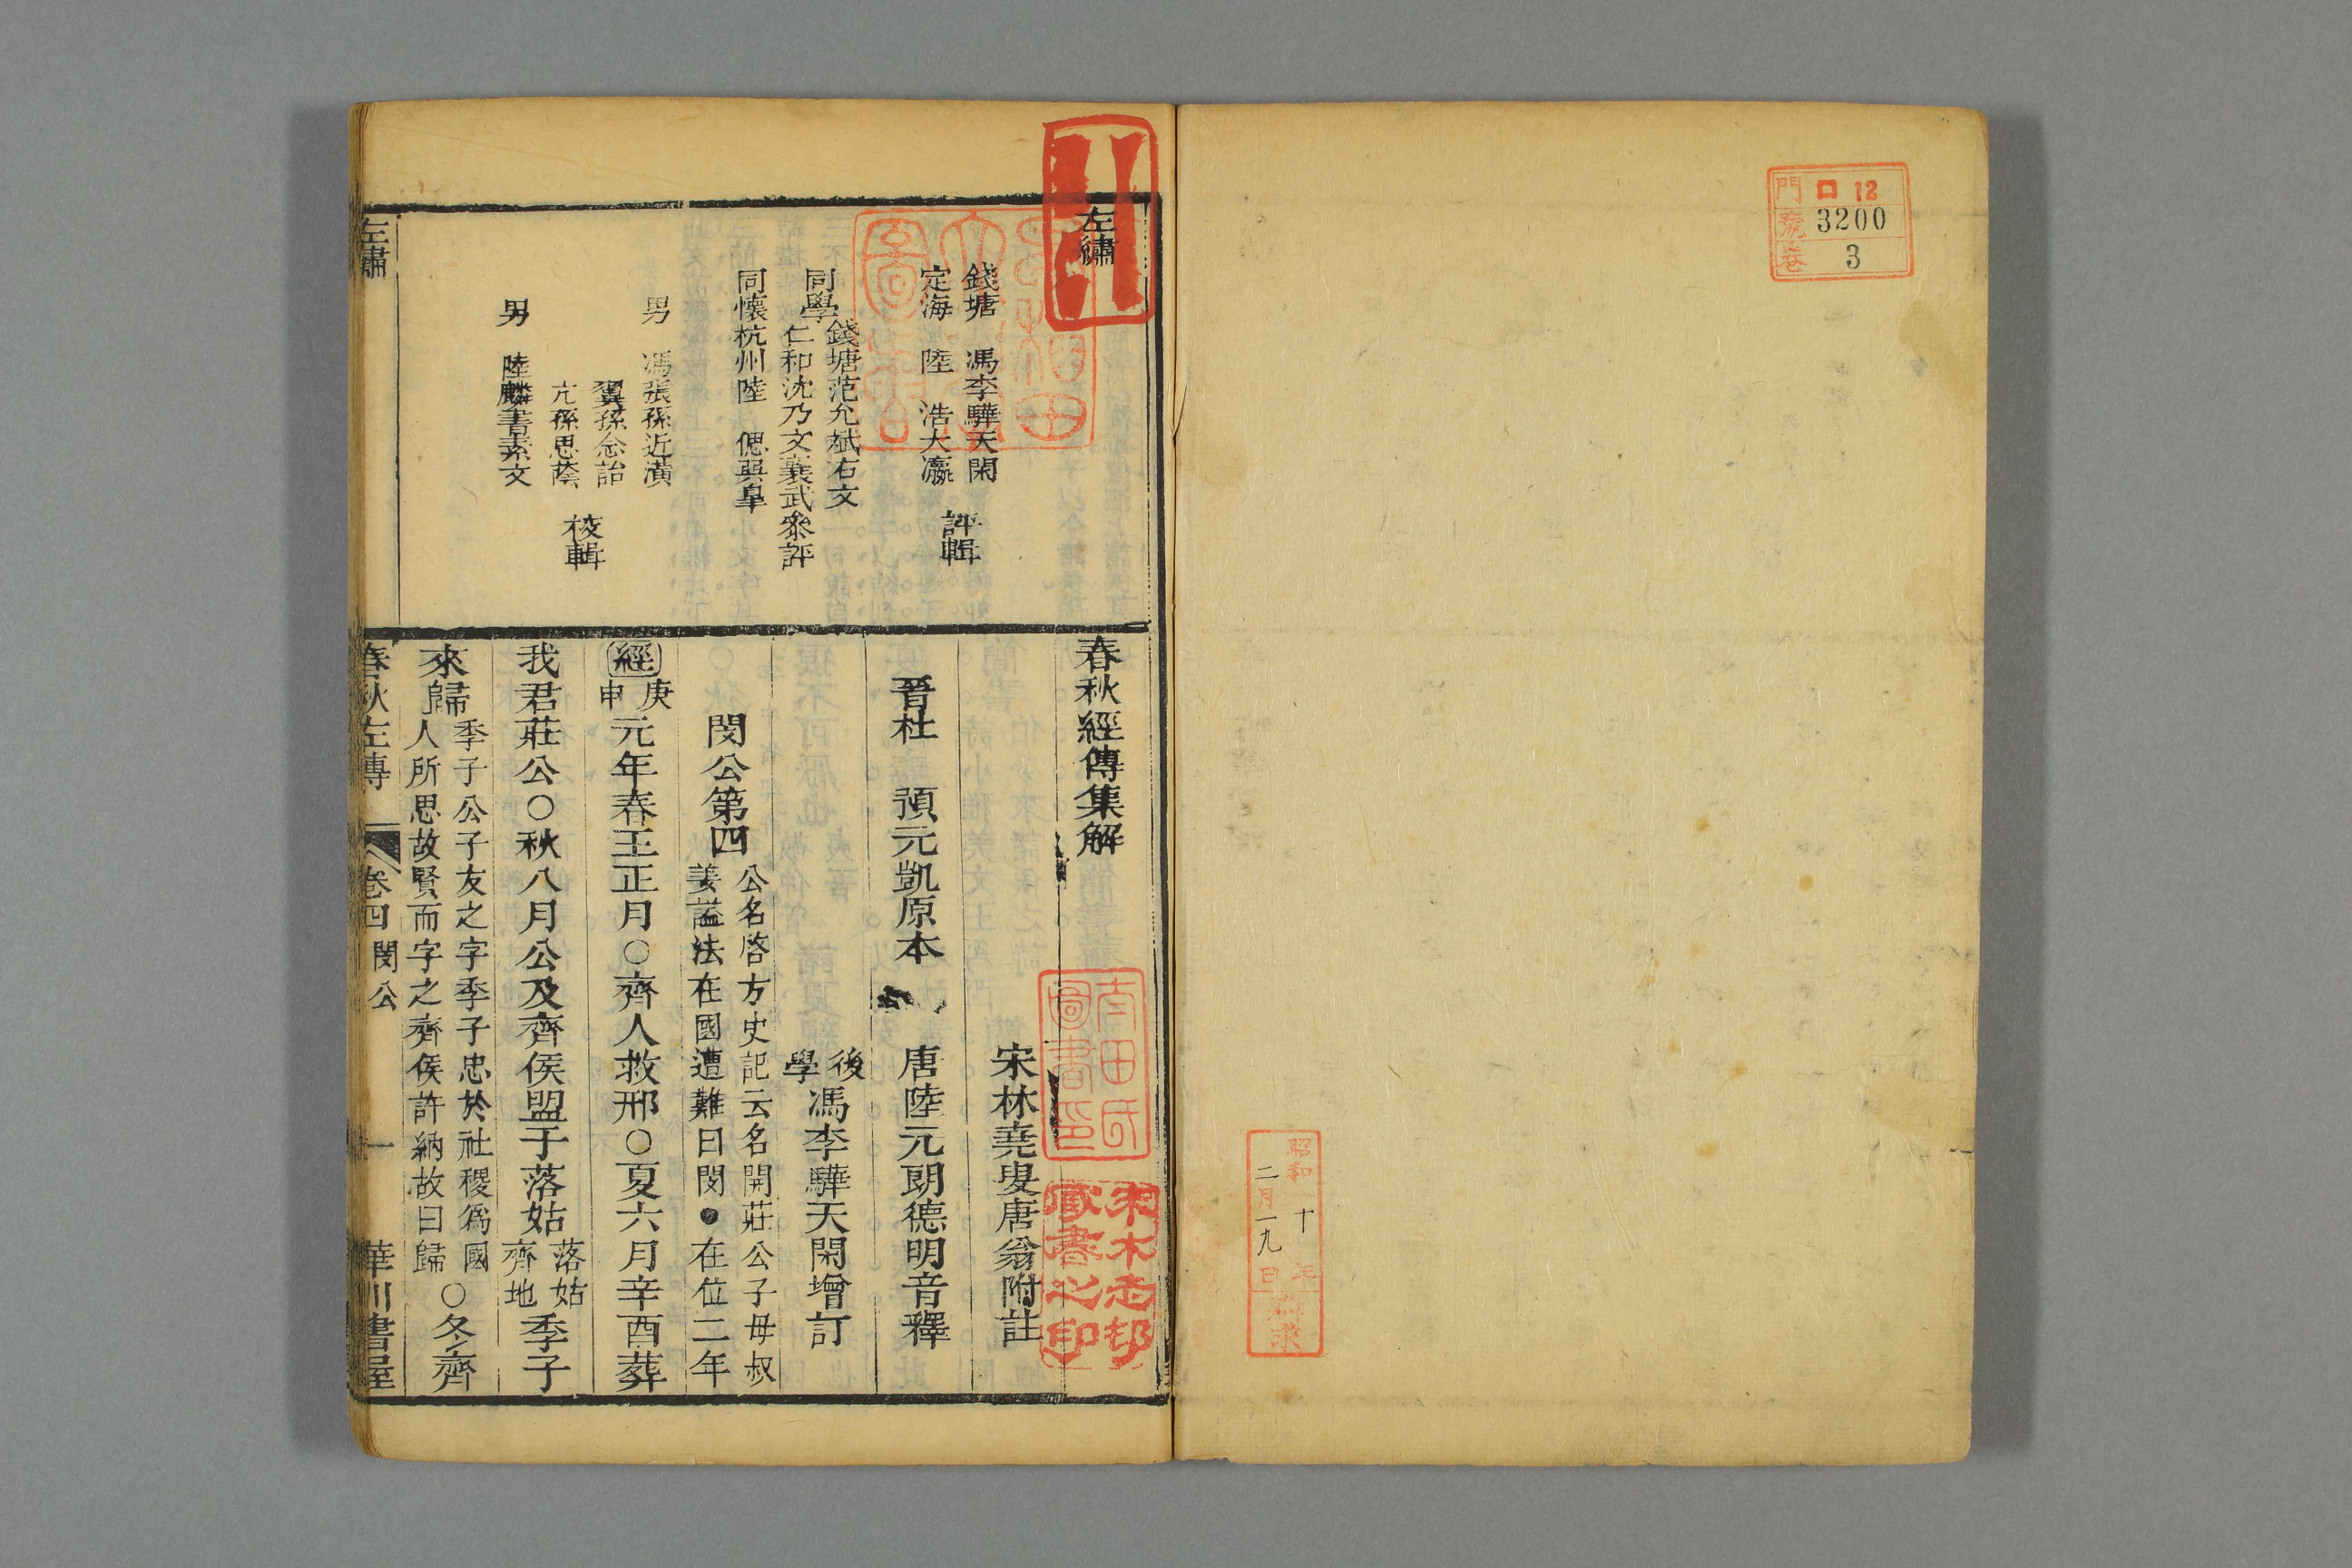 門 口 12
號 3200
卷 3
昭和 十 年
二月一九日
左繡
錢塘 馮李驊天閑
定海 陸 浩大瀛
評輯
同學
錢塘范允斌右文
仁和沈乃文襄武參評
同懷杭州陸 偲巽皐
男 馮張孫近潢
翼孫念詒
亢孫思蔭
校輯
男 陸麟書素文
春秋經傳集解
宋林堯叟唐翁附註
晉杜 預元凱原本
唐陸元朗德明音釋
後學馮李驊天閑增訂
閔公第四
公名啓方史記云名開莊公子母叔
姜謚法在國遭難曰閔●在位二年
經
庚申
元年春王正月○齊人救邢○夏六月辛酉葬
我君莊公○秋八月公及齊侯盟于落姑
落姑
齊地
季子
來歸
季子公子友之字季子忠於社稷爲國
人所思故賢而字之齊侯許納故曰歸
○冬齊
左繡
春秋左傳 卷四 閔公 一 華川書屋